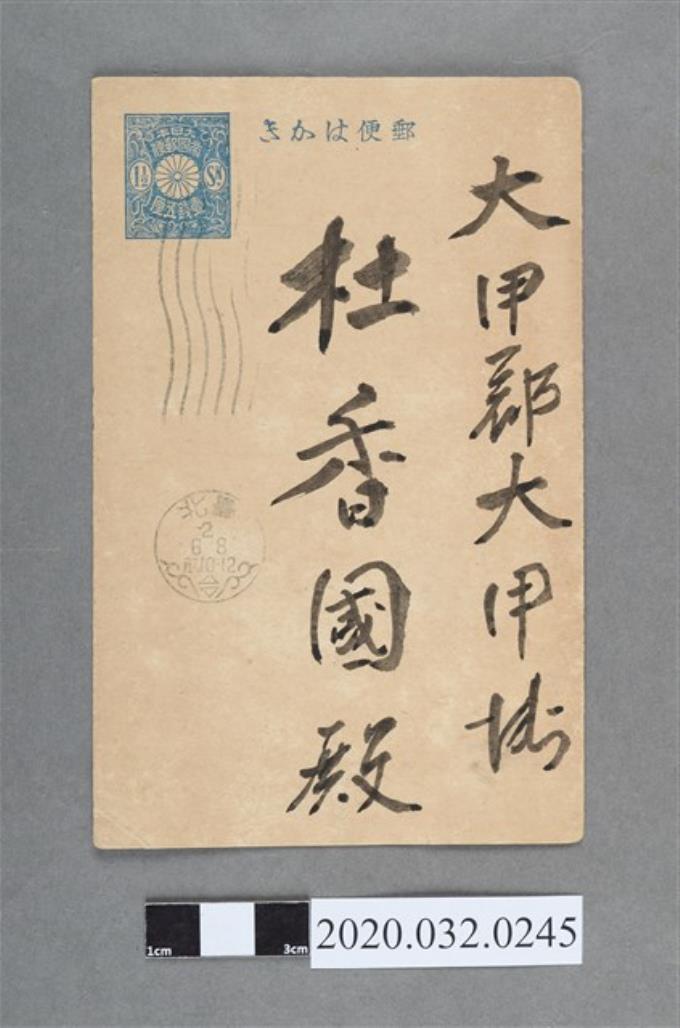 郵便はかき
大日本
帝國郵便
1½ Sn
壹錢五厘
大甲郡大甲街
杜香國殿
2
6 8
前10-12
1cm 3cm
2020.032.0245